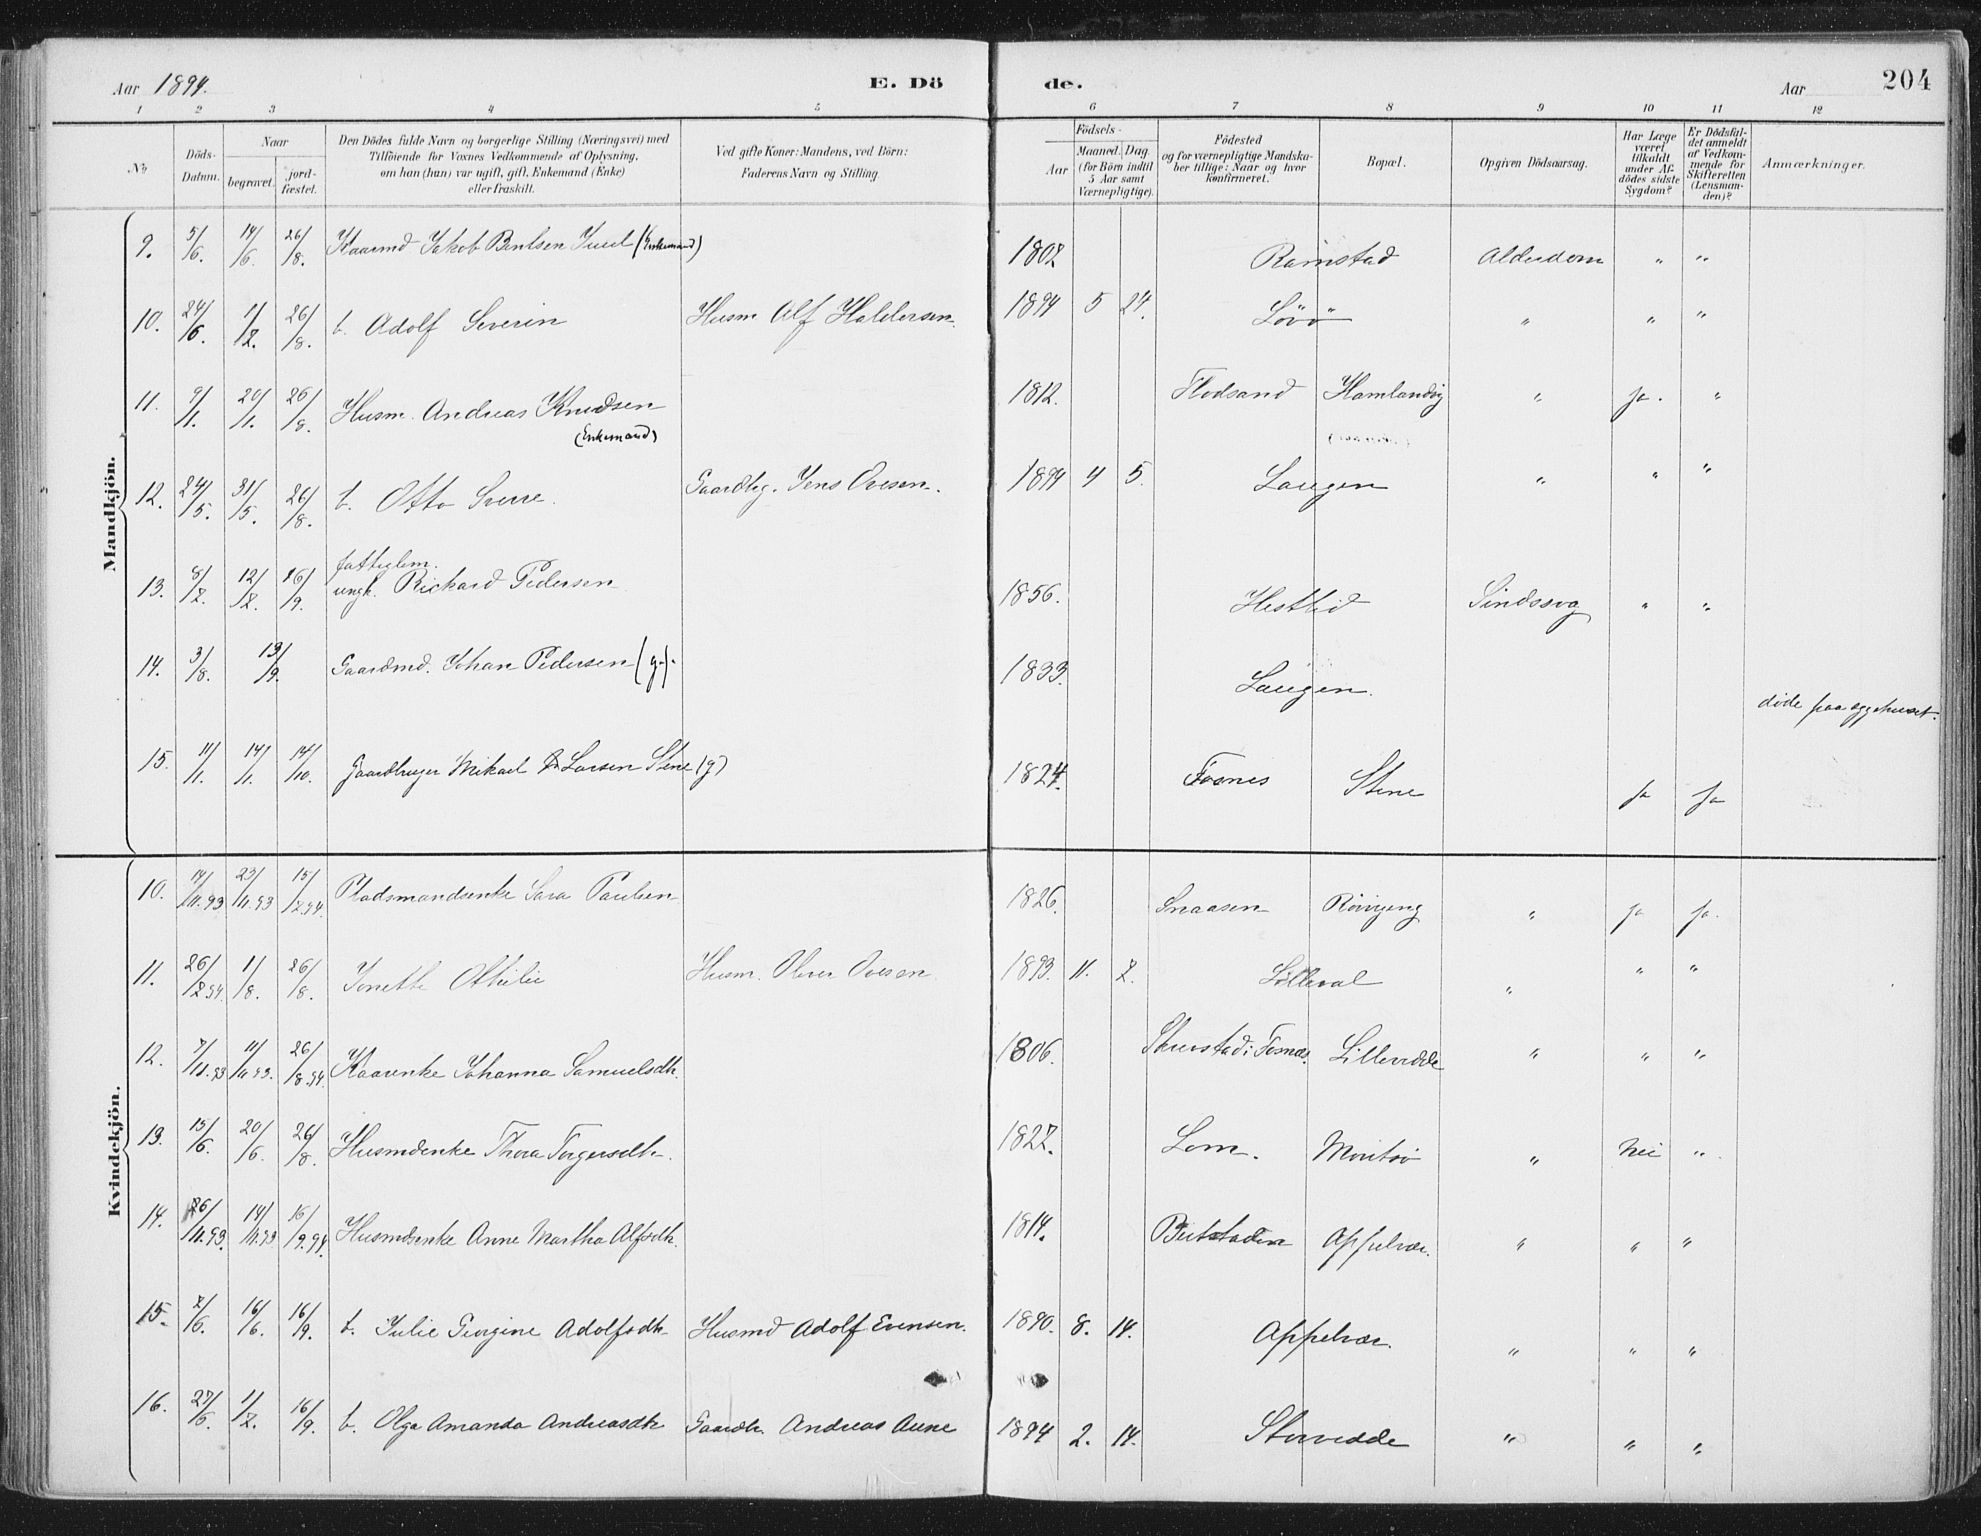 Aar 1894. E. Dö de. Aar 204
1 2 3 4 5 6 7 8 9 10 11 12
No Döds-Datum. Naar begravet. jord-fæstet. Den Dödes fulde Navn og borgerlige Stilling (Næringsvei) med Tilföiende for Voxnes Vedkommende af Oplysning, om han (hun) var ugift, gift, Enkemand (Enke) eller fraskilt. Ved gifte Koner: Mandens, ved Börn: Faderens Navn og Stilling. Födsels- Aar Maaned. Dag (for Börn indtil 5 Aar samt Værnepligtige). Födested og for værnepligtige Mandska-ber tillige: Naar og hvor konfirmeret. Bopæl. Opgiven Dödsaarsag. Har Læge været tilkaldt under Af-dödes sidste Sygdom? Er Dödsfal-det anmeldt af Vedkom-mende for Skifteretten (Lensman-den)? Anmærkninger.
Mandkjön.
9. 5/6. 14/6. 26/8. Kaarmd. Jakob Bentsen Juul (Enkemand) 1807 Ramstad Alderdom " "
10. 24/6. 1/7. 26/8. b. Adolf Severin Husm. Alf Haldorsen. 1894 5 24. Lövö " " "
11. 9/1. 20/1. 26/8. Husm. Andreas Knudsen 1812. Flodsand Hamlandvig " ja. "
(Enkemand)
12. 24/5. 31/5. 26/8. b. Otto Sverre. Gaardbg. Jens Ovesen. 1894 4 5. Laugen " " "
fattiglem.
13. 8/7. 12/7. 16/9. ungk. Rickard Pedersen 1856. Hestlid Sindssvag " "
14. 3/8. 13/9. Gaardmd. Johan Pedersen (g.). 1833. Laugen. døde paa sygehuset.
15. 11/1. 14/1. 14/10. Gaardbruger Mikael Larsen Stene (g) 1824. Fosnes Stene Ja Ja
Kvindekjön.
10. 14/11.93 23/11.93 15/7.94. Pladsmandsenke Sara Paulsen 1826. Snaasen Röirgeng " ja ja.
11. 26/7.94. 1/8. 26/8. Jonette Othilie Husm. Oluer Ovesen. 1893. 11. 7. Lilleval " " "
12. 7/11.93 11/11.93. 26/8.94. Kaarenke Johanna Samuelsdtr. 1806. Skurstad i Fosnæs. Lillevedde " " "
13. 15/6. 20/6. 26/8. Husmdenke Thora Torgersdtr. 1827. Lom. Moritsö " Nei "
14. 26/11.93. 14/11.93 16/9.94. Husmdsenke Anne Martha Alfsdtr. 1814. Beitstaden Appelvær. " " "
15. 7/6. 16/6. 16/9. b. Julie Georgine Adolfsdtr. Husmd Adolf Evensen. 1890. 8. 14. Appelvær. " " "
16. 27/6. 1/7. 16/9. b. Olga Amanda Andreasdtr Gaardbr. Andreas Aune 1894 2. 14. Storvedde " " "